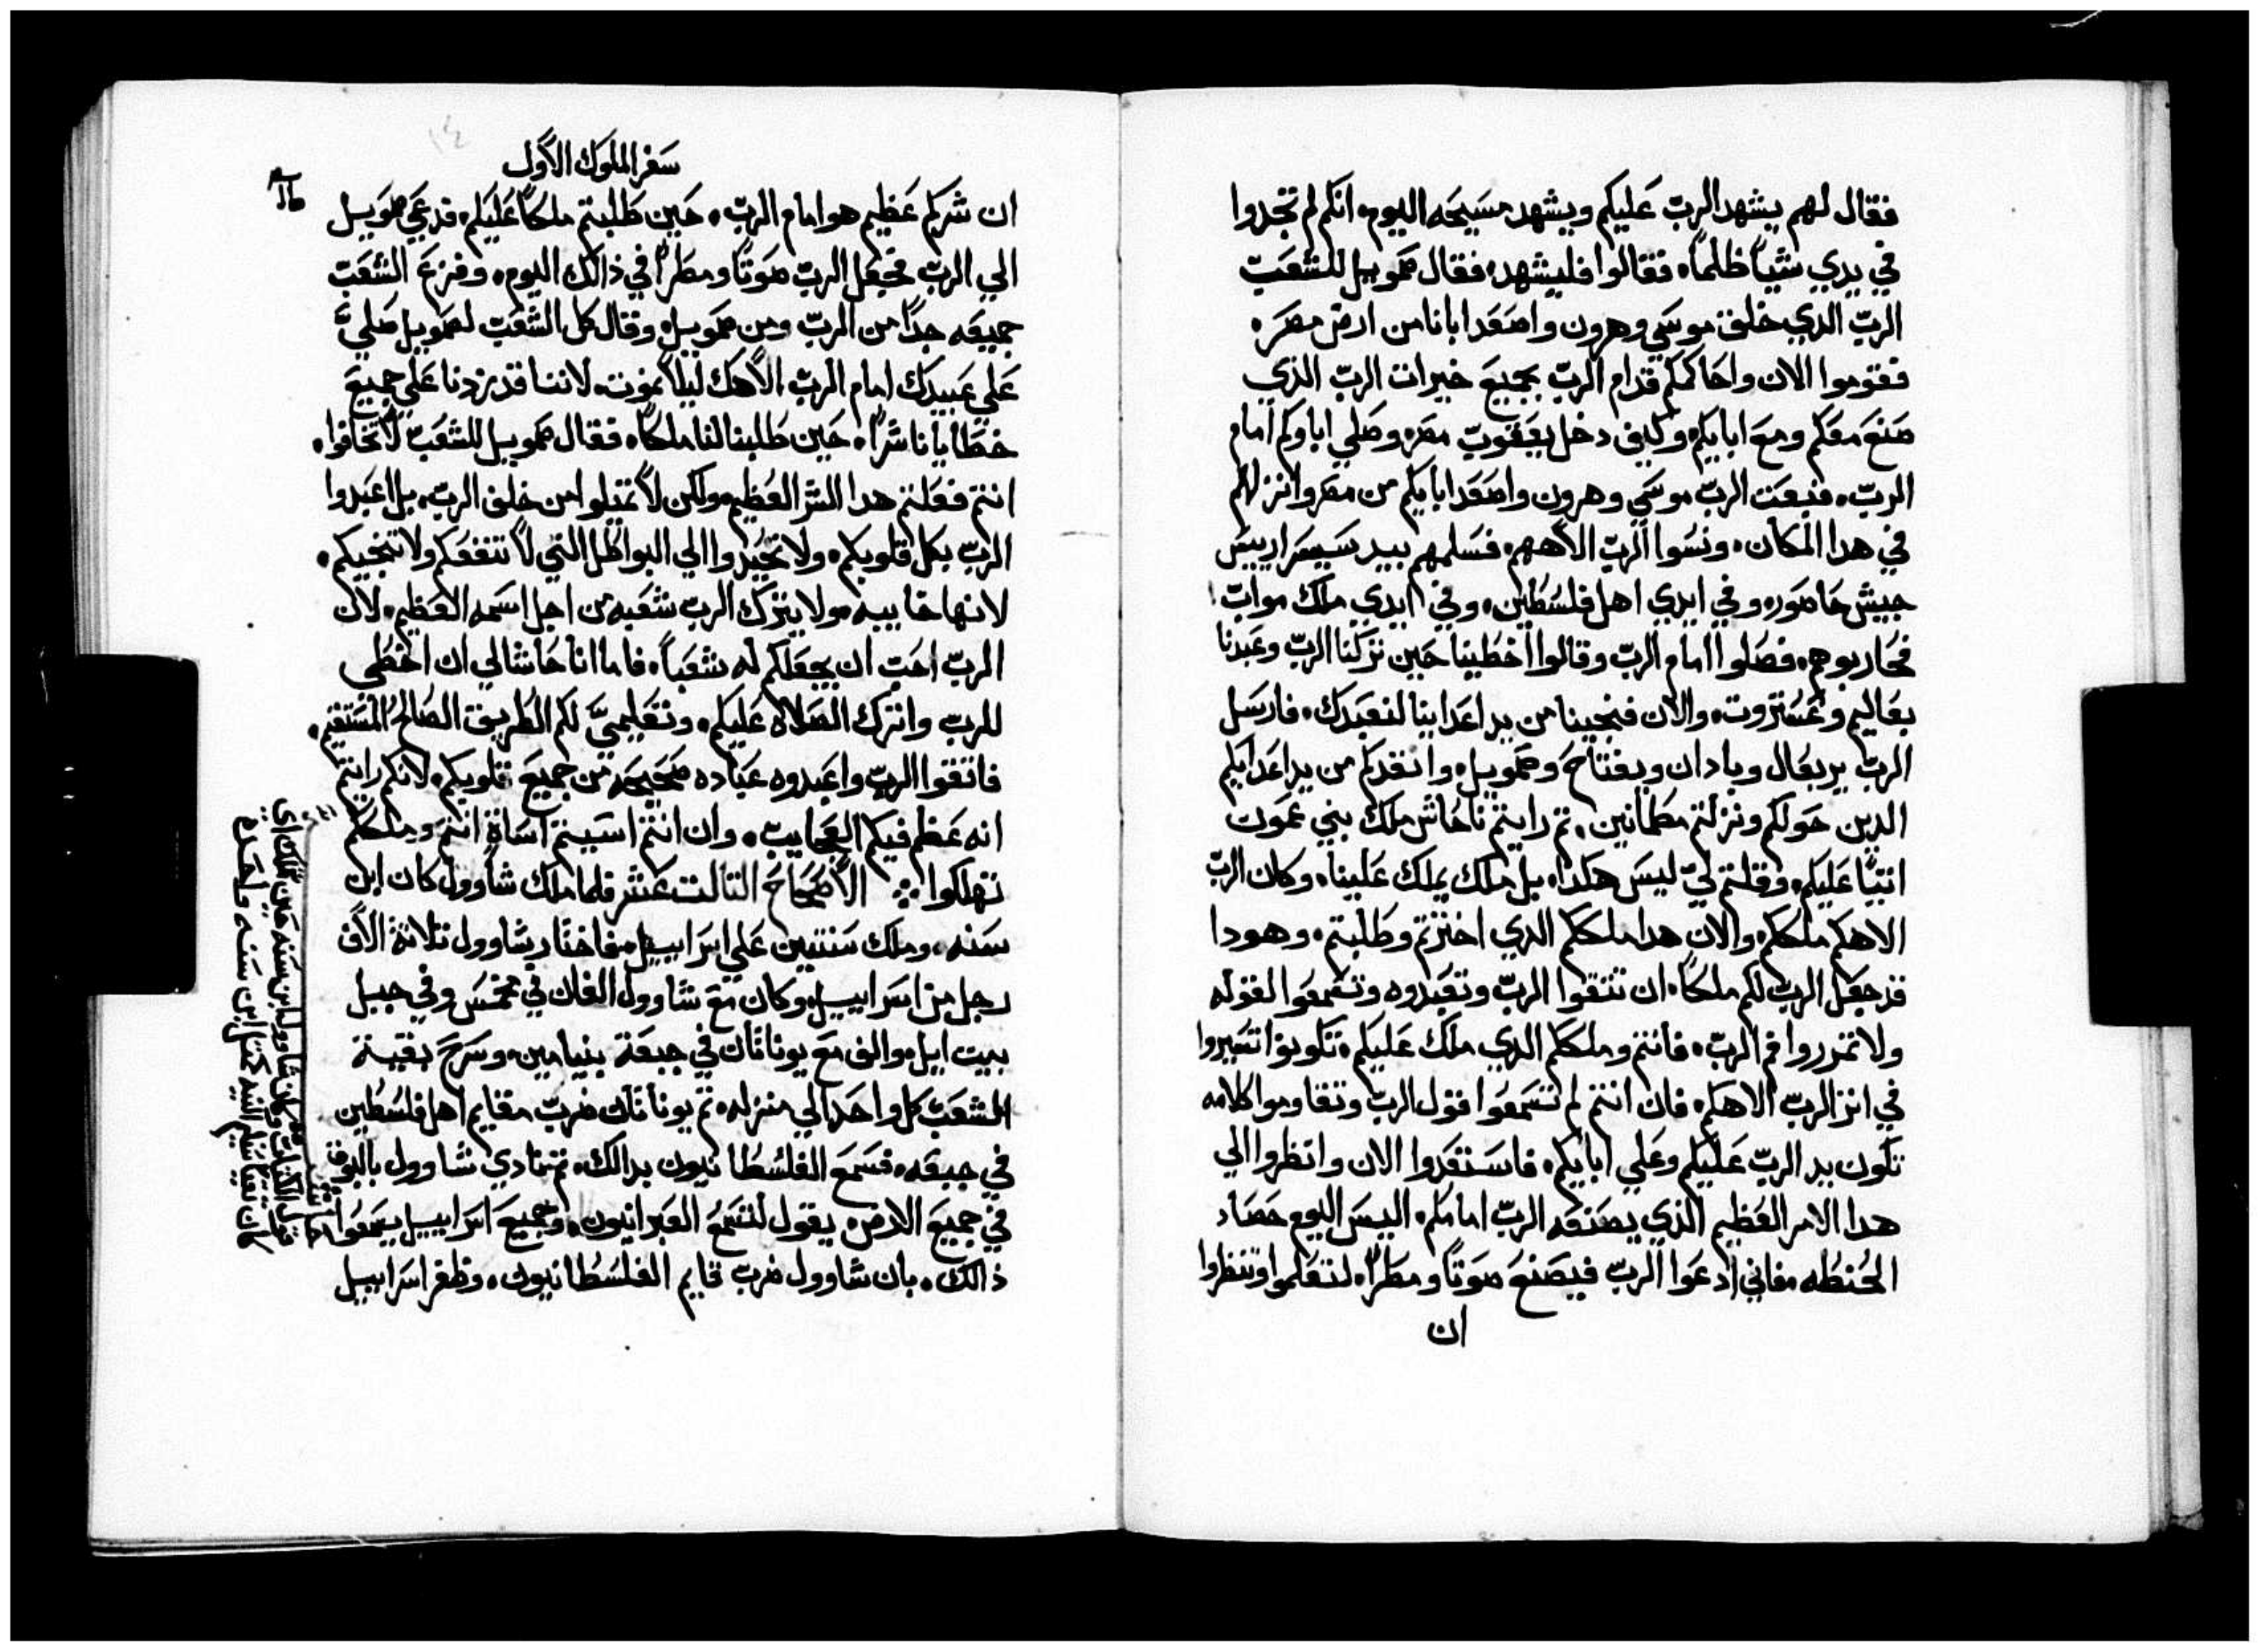 فقال لهم يشهد الرب عليكم ويشهد مسيحه اليوم، انكم لم تجدوا
في يدي شياً ظلماً، فقالوا فليشهد، فقال صمويل للشعب
الرب الدي خلق موسي وهرون واصعد ابانا من ارض مصر،
فقوموا الان واحاكمكم قدام الرب بجميع خيرات الرب الذي
صنع معكم ومع ابايكم، وكيف دخل يعقوب مصر وصلي اباوكم امام
الرب، فبعت الرب موسي وهرون واصعد ابايكم من مصر وانزلهم
في هدا المكان، ونسوا الرب الاههم، فسلمهم بيد سيسرا رييس
جيش حاصور، وفي ايدي اهل فلسطين، وفي ايدي ملك مواب،
فحاربوهم، فصلوا امام الرب وقالوا اخطينا حين تركنا الرب وعبدنا
بعاليم وعشتروت، والان فنجينا من يد اعداينا لنعبدك، فارسل
الرب يربعال وبادان ويفتاح وصمويل، وانقدكم من يد اعدايكم
الدين حولكم ونزلتم مطمانين، تم رايتم ناحاش ملك بني عمون
اتياً عليكم، وقلتم لي ليس هكدا، بل ملك يملك علينا، وكان الرب
الاهكم ملككم، والان هدا ملككم الدي اخترتم وطلبتم، وهودا
قد جعل الرب لكم ملكاً، ان تتقوا الرب وتعبدوه وتسمعوا لقوله
ولا تمرروا فم الرب، فانتم وملككم الدي ملك عليكم، تكونوا تتسيروا
في اتر الرب الاهكم، فان انتم لم تسمعوا قول الرب وتقاوموا كلامه
تكون يد الرب عليكم وعلي ابايكم، فاستعدوا الان وانظروا الي
هدا الامر العظيم الذي يصنعه الرب امامكم، اليس اليوم حصاد
الحنطه، فاني ادعوا الرب فيصنع صوتاً ومطراً، لتعلموا وتنظروا
ان
سفر الملوك الاول
ان شركم عظيم هو امام الرب، حين طلبتم ملكاً عليكم، فدعي صمويل
الي الرب فجعل الرب صوتاً ومطراً في ذالك اليوم، وفزع الشعب
جميعه جداً من الرب ومن صمويل، وقال كل الشعب لصمويل صلي
علي عبيدك امام الرب الاهك ليلا نموت، لاننا قد زدنا علي جميع
خطايانا شراً، حين طلبنا لنا ملكاً، فقال صمويل للشعب لا تخافوا،
انتم فعلتم هدا الشر العظيم، ولكن لا تميلوا من خلف الرب، بل اعبدوا
الرب بكل قلوبكم، ولا تحيدوا الي البواطل التي لا تنفعكم ولا تنجيكم،
لانها خايبه، ولا يترك الرب شعبه من اجل اسمه العظيم، لان
الرب احب ان يجعلكم له شعباً، فاما انا حاشا لي ان اخطي
للرب واترك الصلاه عليكم، وتعليمي لكم الطريق الصالح المستقيم،
فاتقوا الرب واعبدوه عباده صحيحه من جميع قلوبكم، لانكم رايتم
انه عظم فيكم العجايب، وان انتم اسيتم اساة انتم وملككم
تهلكوا ∴ الاصحاح التالت عشر فلما ملك شاوول كان ابن
سنه، وملك سنتين علي اسراييل، فاختار شاوول تلاتة الاف
رجل من اسراييل، وكان مع شاوول الفان في مخمس وفي جبل
بيت ايل، والف مع يوناتان في جبعة بنيامين، وسرح بقية
الشعب كل واحد الي منزله، تم يوناتان ضرب مقايم اهل فلسطين
في جبعه، فسمع الفلسطانيون بدالك، تم نادي شاوول بالبوق
في جميع الارض، يقول لتسمع العبرانيون، وجميع اسراييل يسمعوا
ذالك، بان شاوول ضرب قايم الفلسطانيون، وظفر اسراييل